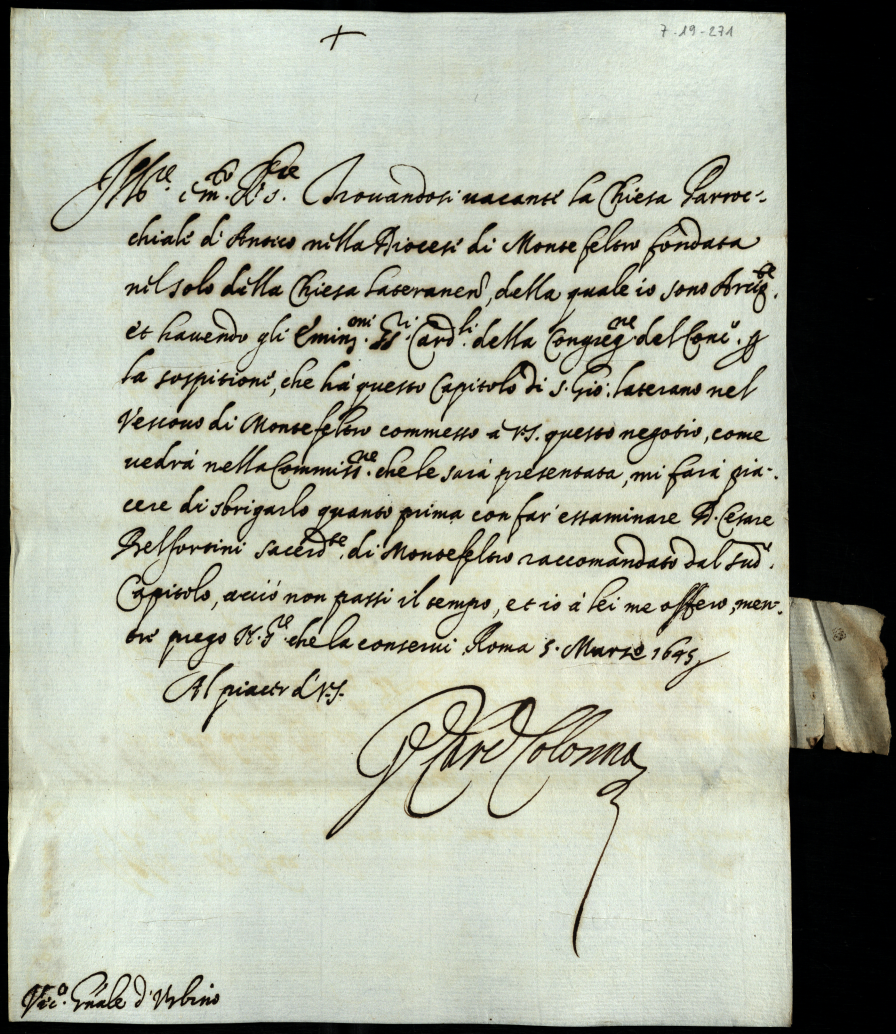 +
7-19-271
Ill.re e m.to R.e s.re Trouandosi uacante la Chiesa Parroc-
chiale di Antico nella Diocesi di Montefeltro fondata
nel solo della Chiesa Lateranen, della quale io sono Arcip.te.
et hauendo gli Emin.mi SS.ri Card.li della Congreg.ne del Conc.o p
la sospitione, che há questo Capitolo di S. Gio: Laterano nel
Vescouo di Montefeltro commesso á V.S. questo negotio, come
uedrá nella Commiss.ne che le sará presentata, mi fará pia-
cere di sbrigarlo quanto prima con far' essaminare D. Cesare
Belfortini sacerd.te di Montefeltro raccomandato dal sud.o
Capitolo, acció non passi il tempo, et io á lei me offero, men-
tre prego N. S.re che la conserui. Roma 5. Marzo 1645
Al piacer d' V.S.
Card Colonna
Vic.o Gnale d' Vrbino